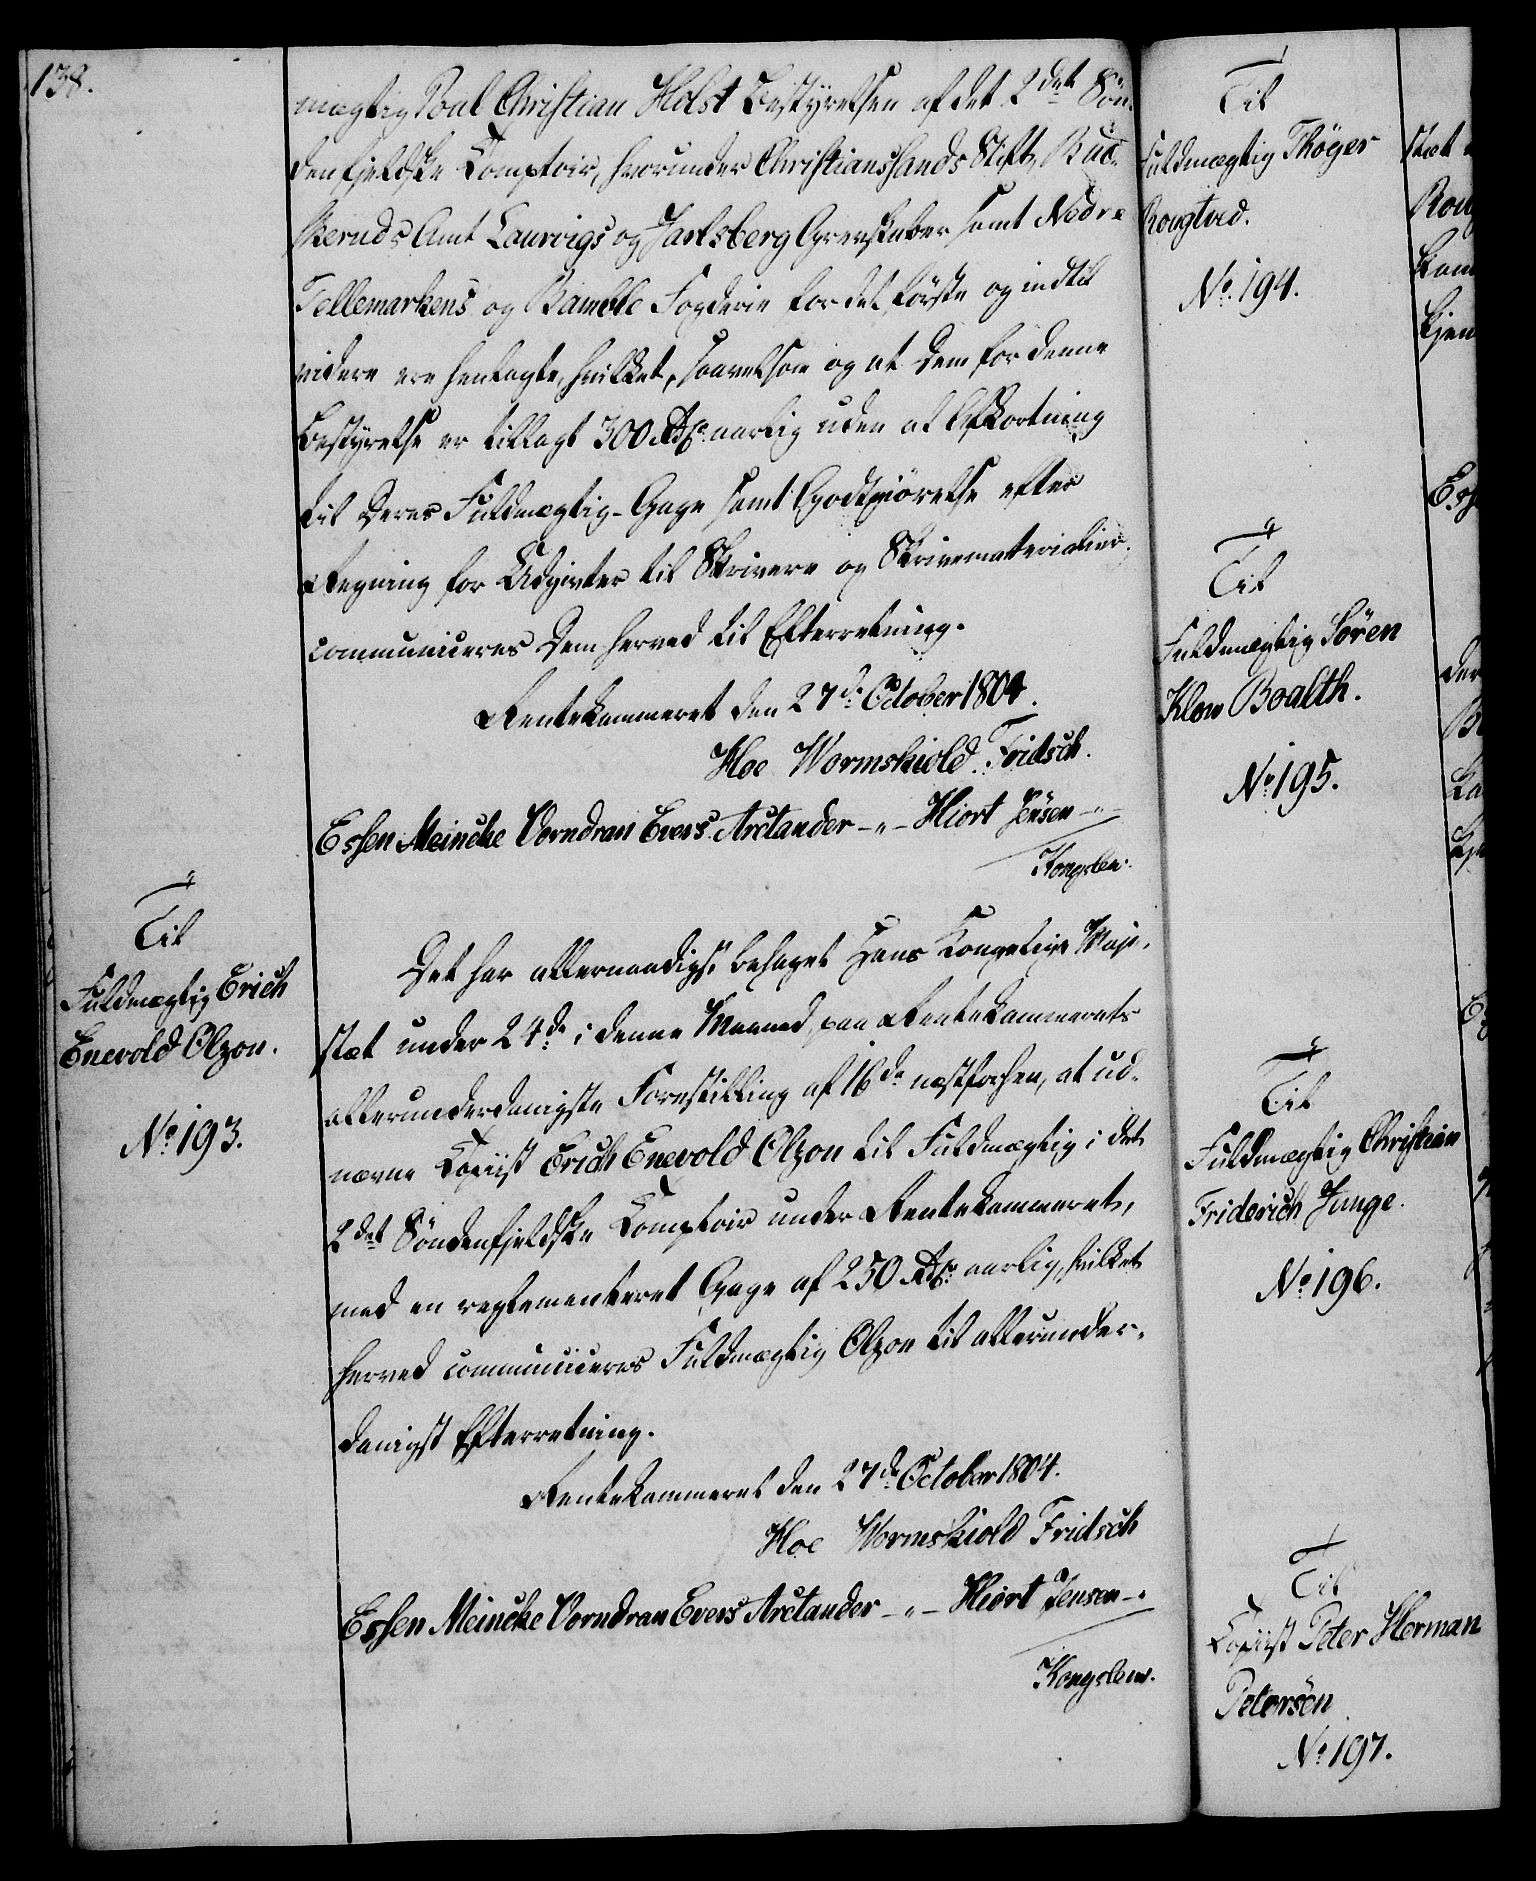 138.
mægtig Poul Christian Holst Bestyrelsen af det 2det Søn-
denfjeldske Comptoir, hvorunder Christianssands Stift, Bus-
keruds Amt Laurvigs og Jarlsberg Grevskaber samt Nedre
Tellemarkens og Bamble Fogderie for det første og indtil
videre ere henlagte, hvilket, saavelsom og at Dem for denne
Bestyrelse er tillagt 300 Rdr aarlig uden at Afkortning
til Deres Fuldmægtig-Gage samt Godtgiørelse efter
Regning for Udgivter til Skrivere og Skrivematerialier
communiceres Dem herved til Efterretning.
Rentekammeret den 27de October 1804.
Hoe Wormskiold Fridsch.
Essen Meincke Vorndran Evers Arctander -"- Hiort Jensen -"-
Kongslew.
Til
Fuldmægtig Erich
Enevold Olzon.
No 193.
Det har allernaadigst behaget Hans Kongelige Maje-
stæt under 24de i denne Maaned, paa Rentekammerets
allerunderdanigste Forestilling af 16de næstforhen, at ud-
nævne Copiist Erich Enevold Olzon til Fuldmægtig i det
2det Søndenfjeldske Comptoir under Rentekammeret,
med en reglementeret Gage af 250 Rdr aarlig, hvilket
herved communiceres Fuldmægtig Olzon til allerunder-
danigst Efterretning.
Rentekammeret den 27de October 1804.
Hoe Wormskiold Fridsch
Essen Meincke Vorndran Evers Arctander -"- Hiort Jensen -"-
Kongslew.
Til
Fuldmægtig Thøger
Rougtved.
No 194.
Til
Fuldmægtig Sören
Klow Boalth.
No 195.
Til
Fuldmægtig Christian
Friderich Junge.
No 196.
Til
Copiist Peter Herman
Petersön
No 197.